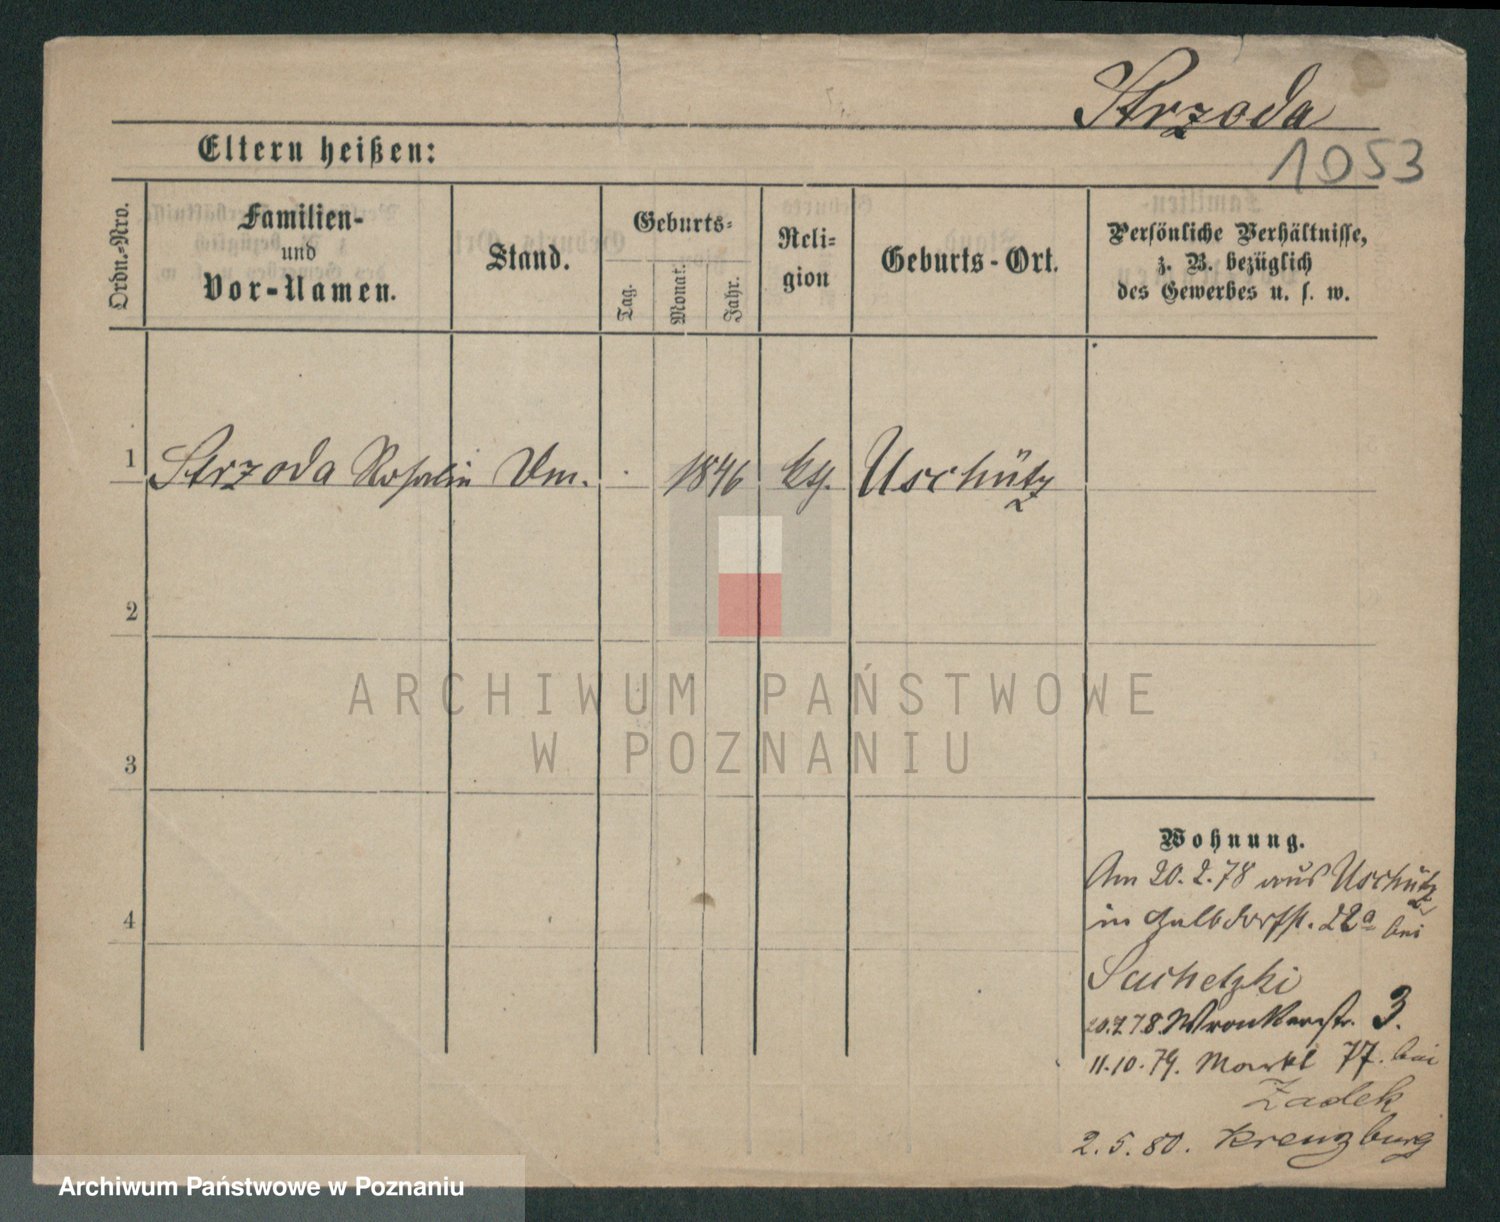 Strzoda
1053
Eltern heißen:
Ordn.-Nro.
Familien-
und
Vor-Namen.
Stand.
Geburts-
Tag.
Monat.
Jahr.
Reli-
gion
Geburts-Ort.
Persönliche Verhältnisse,
z. B. bezüglich
des Gewerbes u. s. w.
1 Strzoda Rosalie 1846 kth. Uschütz
2
3
4
ARCHIWUM PAŃSTWOWE
W POZNANIU
Wohnung.
Am 20.2.78 aus Uschütz
in Halbdorfst. 22a bei
20.7.78 Wronkerstr. 3.
11.10.79. Markt 77. bei
Zadek
2.5.80. Kreuzburg
Archiwum Państwowe w Poznaniu